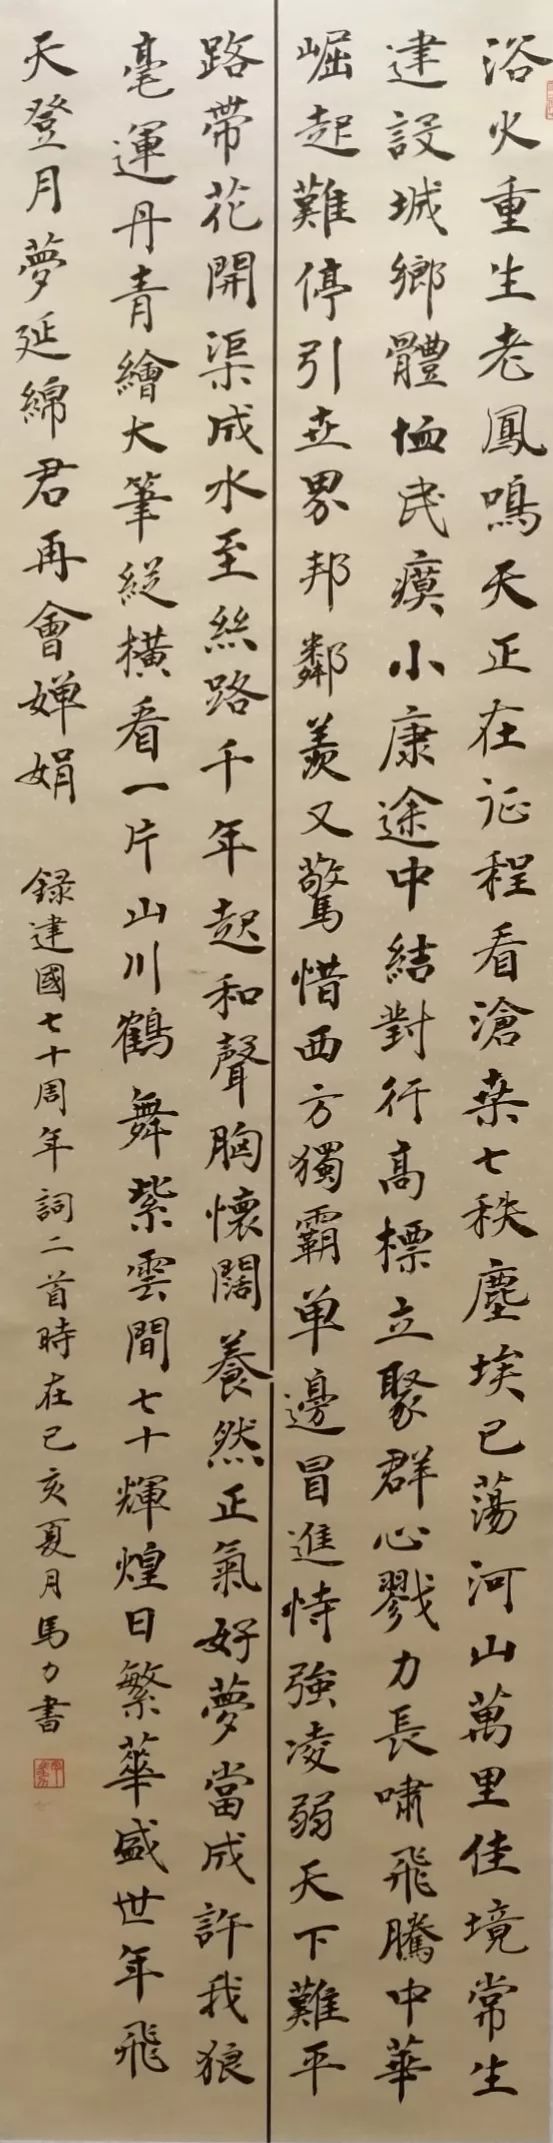 浴火重生老鳳鳴天正在征程看滄桑七秩塵埃已蕩河山萬里佳境常生
建設城鄉體恤民瘼小康途中結對行高標立聚群心戮力長嘯飛騰中華
崛起難停引世界邦鄰羨又驚惜西方獨霸单邊冒進恃強凌弱天下難平
路帶花開渠成水至絲路千年起和聲胸懷闊養然正氣好夢當成許我狼
毫運丹青繪大筆縱橫看一片山川鶴舞紫雲間七十輝煌日繁華盛世年飛
天登月夢延綿君再會婵娟
録建國七十周年詞二首時在己亥夏月馬力書